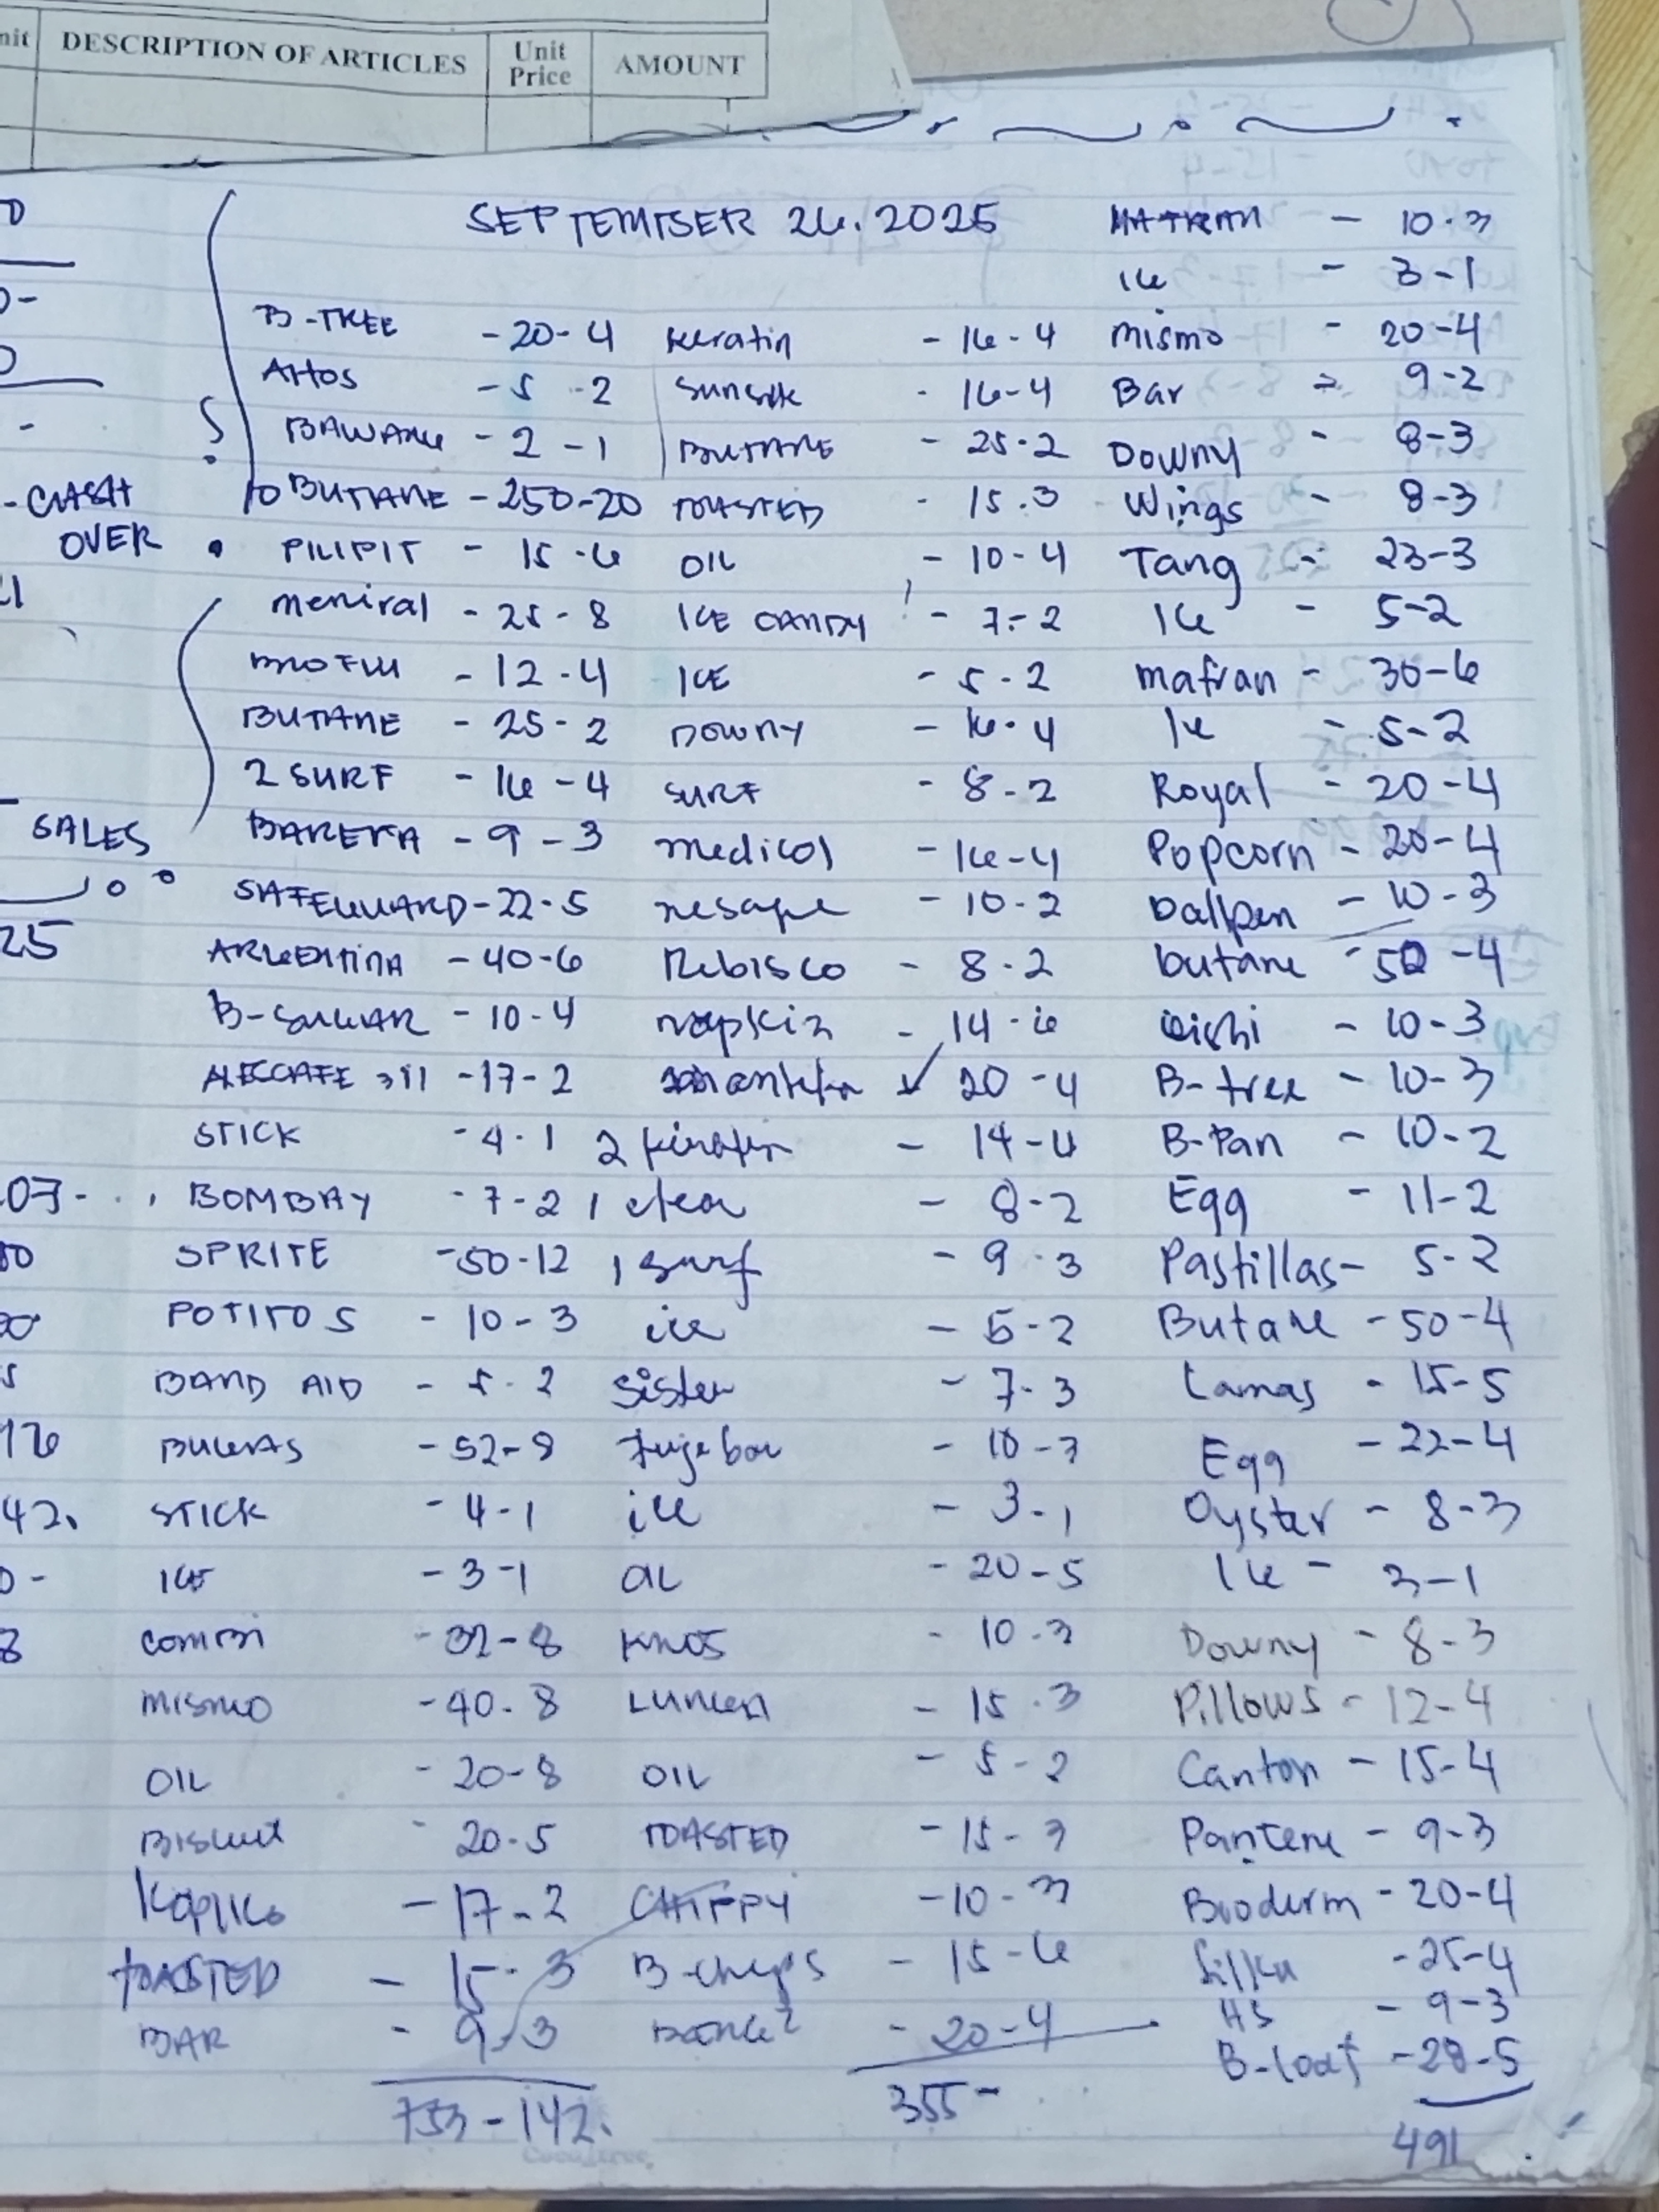 DESCRIPTION OF ARTICLES
Unit Price
AMOUNT
SEPTEMBER 26.2025
- CASH
OVER
SALES
25
07-
42.
B-TREE - 20-4
- 5 -2
- 2 - 1
10 BUTANE - 250-20
PILIPIT - 15-6
meniral - 25-8
- 12-4
BUTANE - 25-2
2 SURF - 16-4
BARETA - 9-3
SAFEGUARD - 22-5
ARGENTINA - 40-6
B-SUGAR - 10-4
NESCAFE 3n1 - 17-2
STICK - 4-1
BOMBAY - 7-2
SPRITE - 50-12
POTITOS - 10-3
BAND AID - 5-2
BUGAS - 52-8
STICK - 4-1
ICE - 3-1
COMBI - 32-8
MISMO - 40-8
OIL - 20-8
BISCUIT - 20-5
Kopiko - 17-2
TOASTED - 15-3
BAR - 9-3
753-142.
keratin - 16-4
sunsilk - 16-4
BUTANE - 25-2
TOASTED - 15-3
OIL - 10-4
ICE CANDY - 7-2
ICE - 5-2
DOWNY - 16-4
SURF - 8-2
medicol - 16-4
- 10-2
Rebisco - 8-2
napkin - 14-6
20-4
2 - 14-4
1 clear - 8-2
1 surf - 9-3
ice - 5-2
sister - 7-3
- 10-3
ice - 3-1
OIL - 20-5
- 10-3
- 15-3
OIL - 5-2
TOASTED - 15-3
CHIPPY - 10-3
B-chips - 15-6
- 20-4
355-
MAFRAN - 10-3
Ice - 3-1
mismo - 20-4
Bar - 9-2
Downy - 8-3
Wings - 8-3
Tang - 23-3
Ice - 5-2
mafran - 30-6
Ice - 5-2
Royal - 20-4
Popcorn - 20-4
ballpen - 10-3
butane - 50-4
oishi - 10-3
B-tree - 10-3
B-Pan - 10-2
Egg - 11-2
Pastillas - 5-2
Butane - 50-4
Lamas - 15-5
Egg - 22-4
Oyster - 8-3
Ice - 3-1
Downy - 8-3
Pillows - 12-4
Canton - 15-4
Pantene - 9-3
Bioderm - 20-4
Silka - 25-4
HS - 9-3
B-loaf - 28-5
491